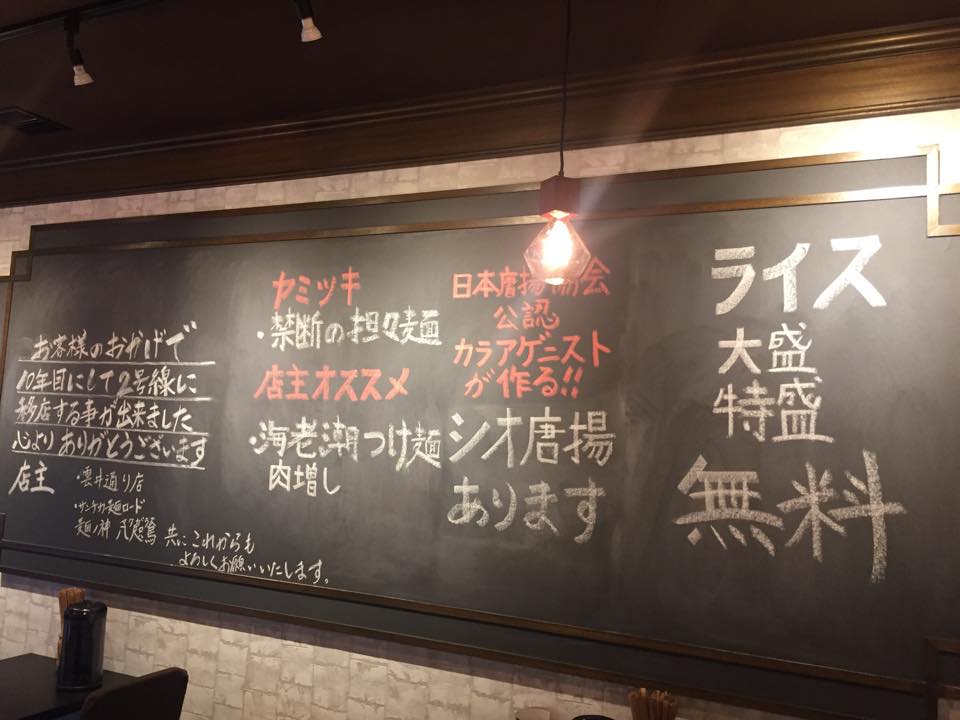 お客様のおかげで
10年目にして2号線に
移店する事が出来ました
心よりありがとうございます
店主
・雲井通り店
・サンチカ麺ロード
麺ノ神
共にこれからも
よろしくお願いいたします。
ヤミツキ
・禁断の担々麺
店主オススメ
・海老潮つけ麺
肉増し
日本唐揚協会
公認
カラアゲニスト
が作る!!
シオ唐揚
あります
ライス
大盛
特盛
無料